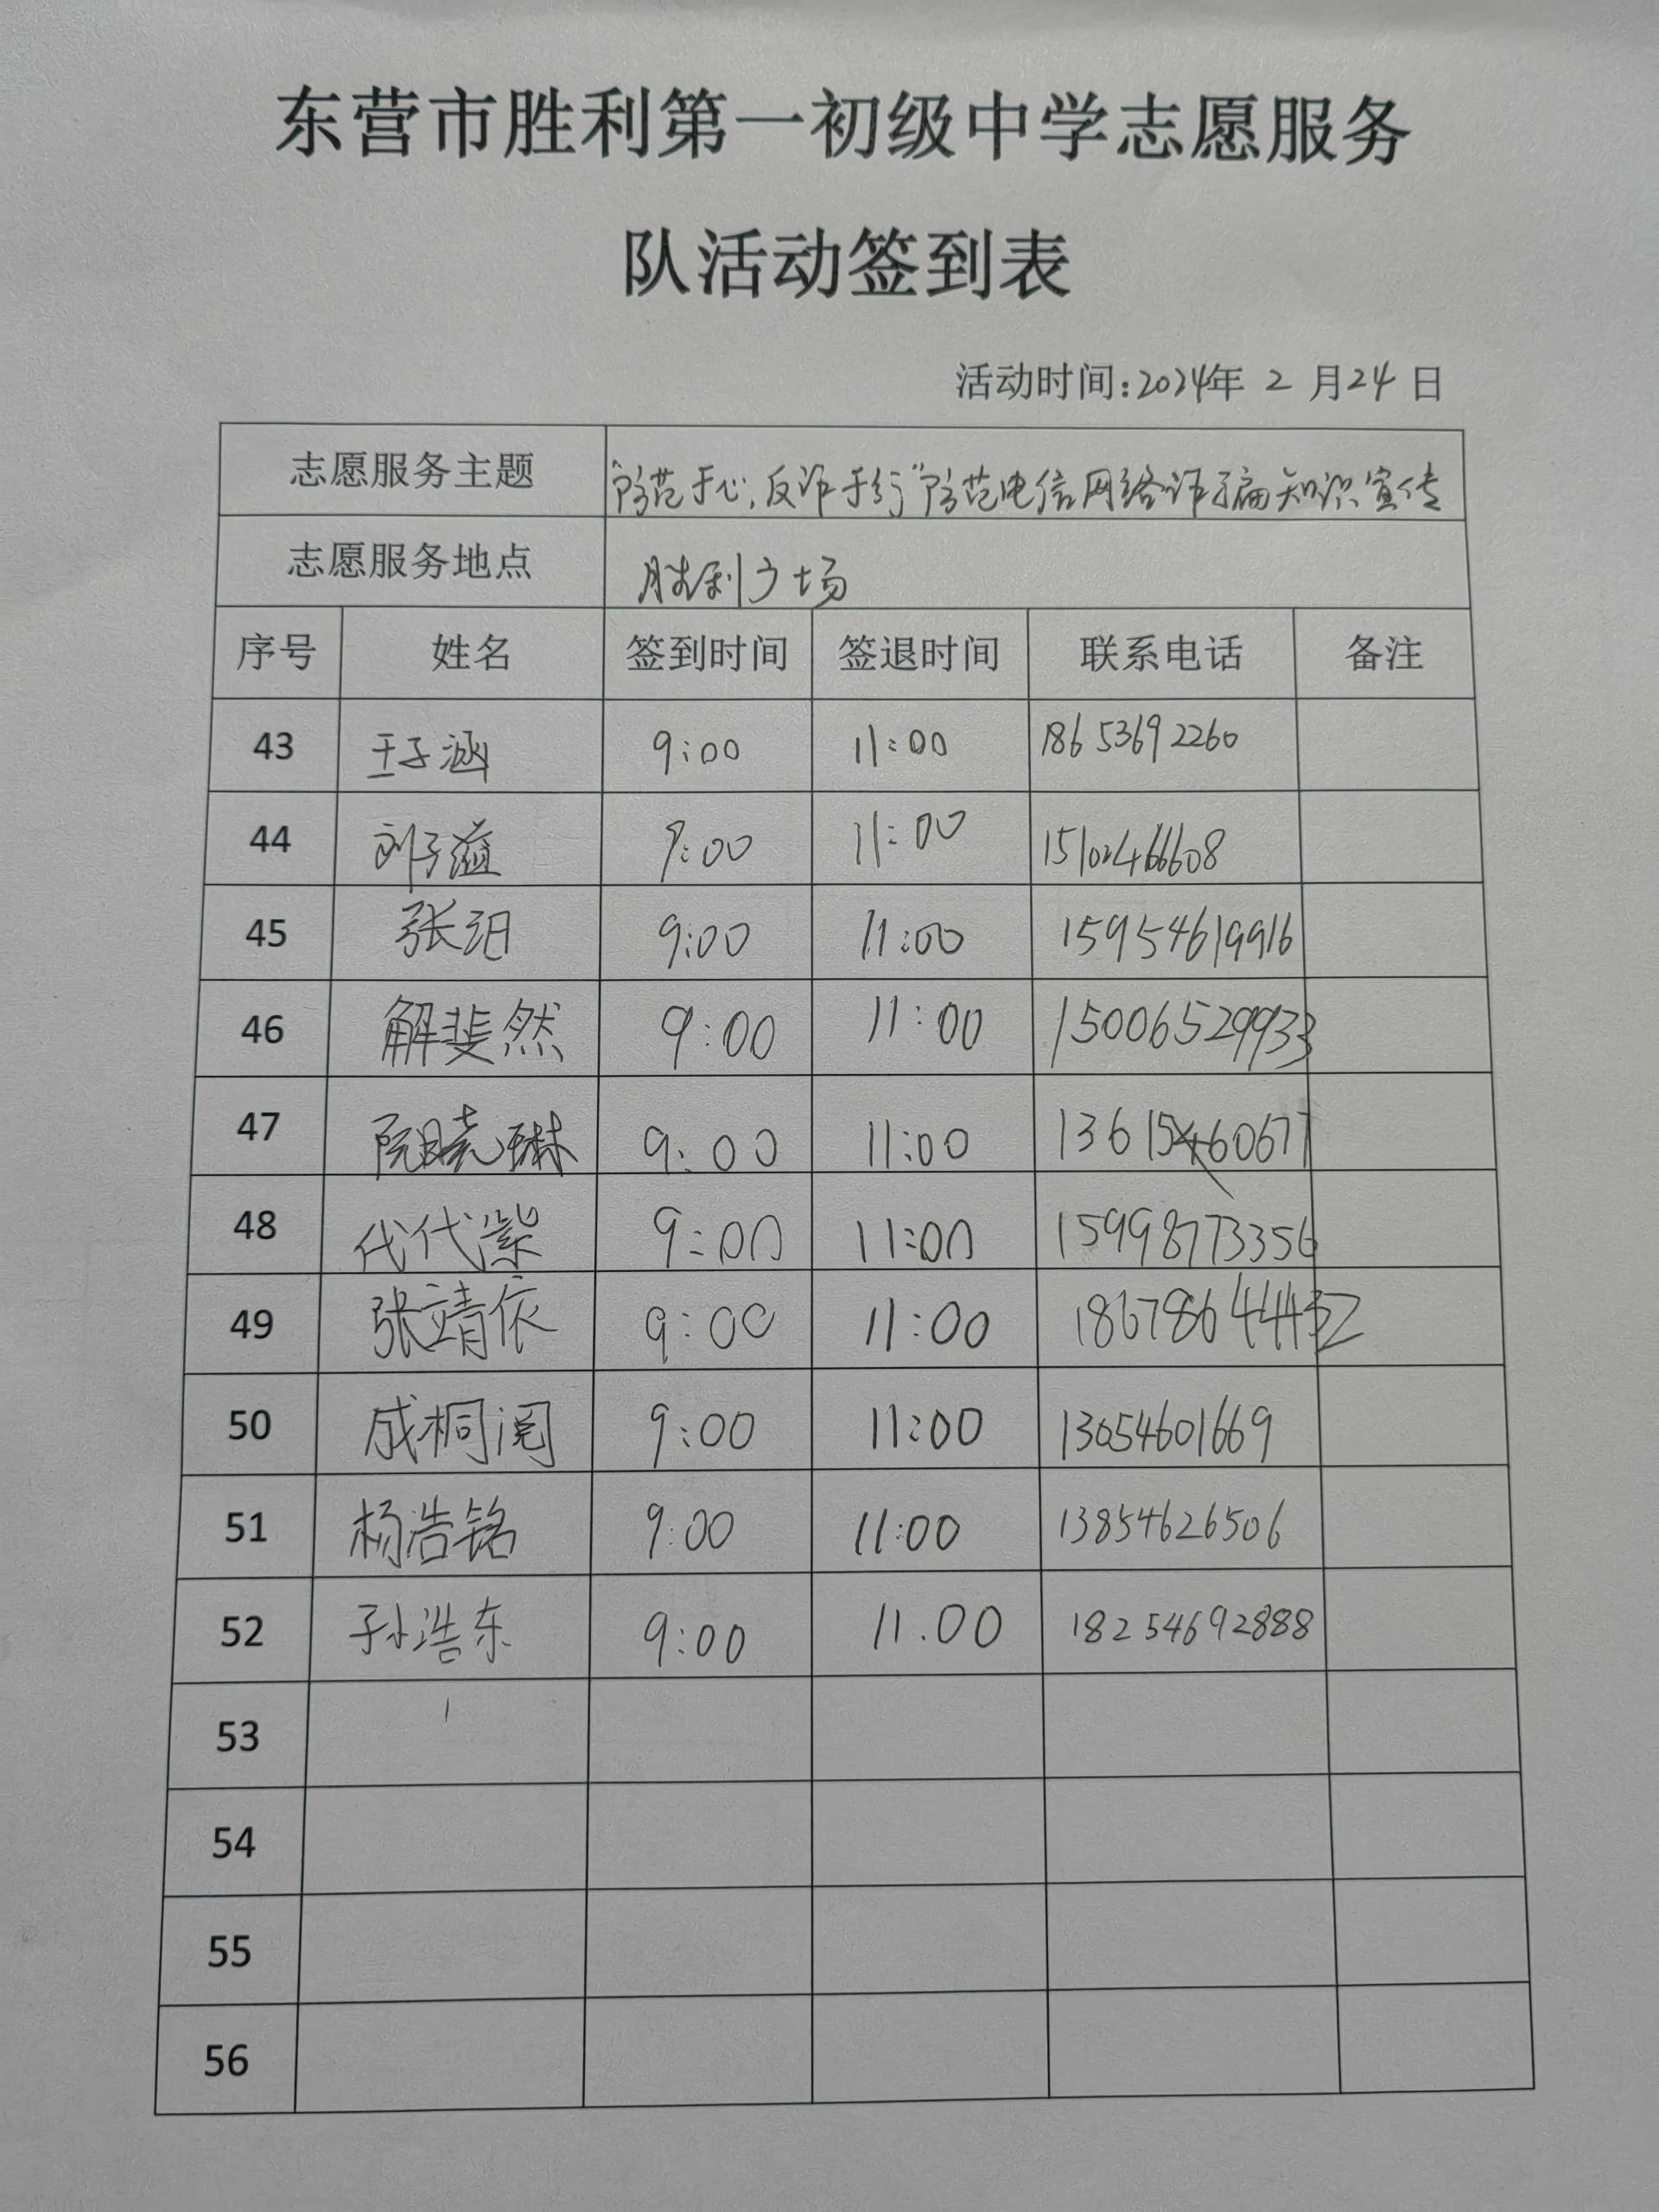 东营市胜利第一初级中学志愿服务
队活动签到表
活动时间:2024年 2 月 24 日
志愿服务主题 "防范于心,反诈于行"防范电信网络诈骗知识宣传
志愿服务地点 胜利广场
序号 姓名 签到时间 签退时间 联系电话 备注
43 王子涵 9:00 11:00 18653692260
44 刘子溢 9:00 11:00 15102466608
45 张汨 9:00 11:00 15954619916
46 解斐然 9:00 11:00 15006529933
47 阮晓琳 9:00 11:00 13615460677
48 代代 9:00 11:00 15998773356
49 张靖依 9:00 11:00 18678644432
50 成桐 9:00 11:00 13054601669
51 杨浩铭 9:00 11:00 13854626506
52 孙浩东 9:00 11.00 18254692888
53
54
55
56